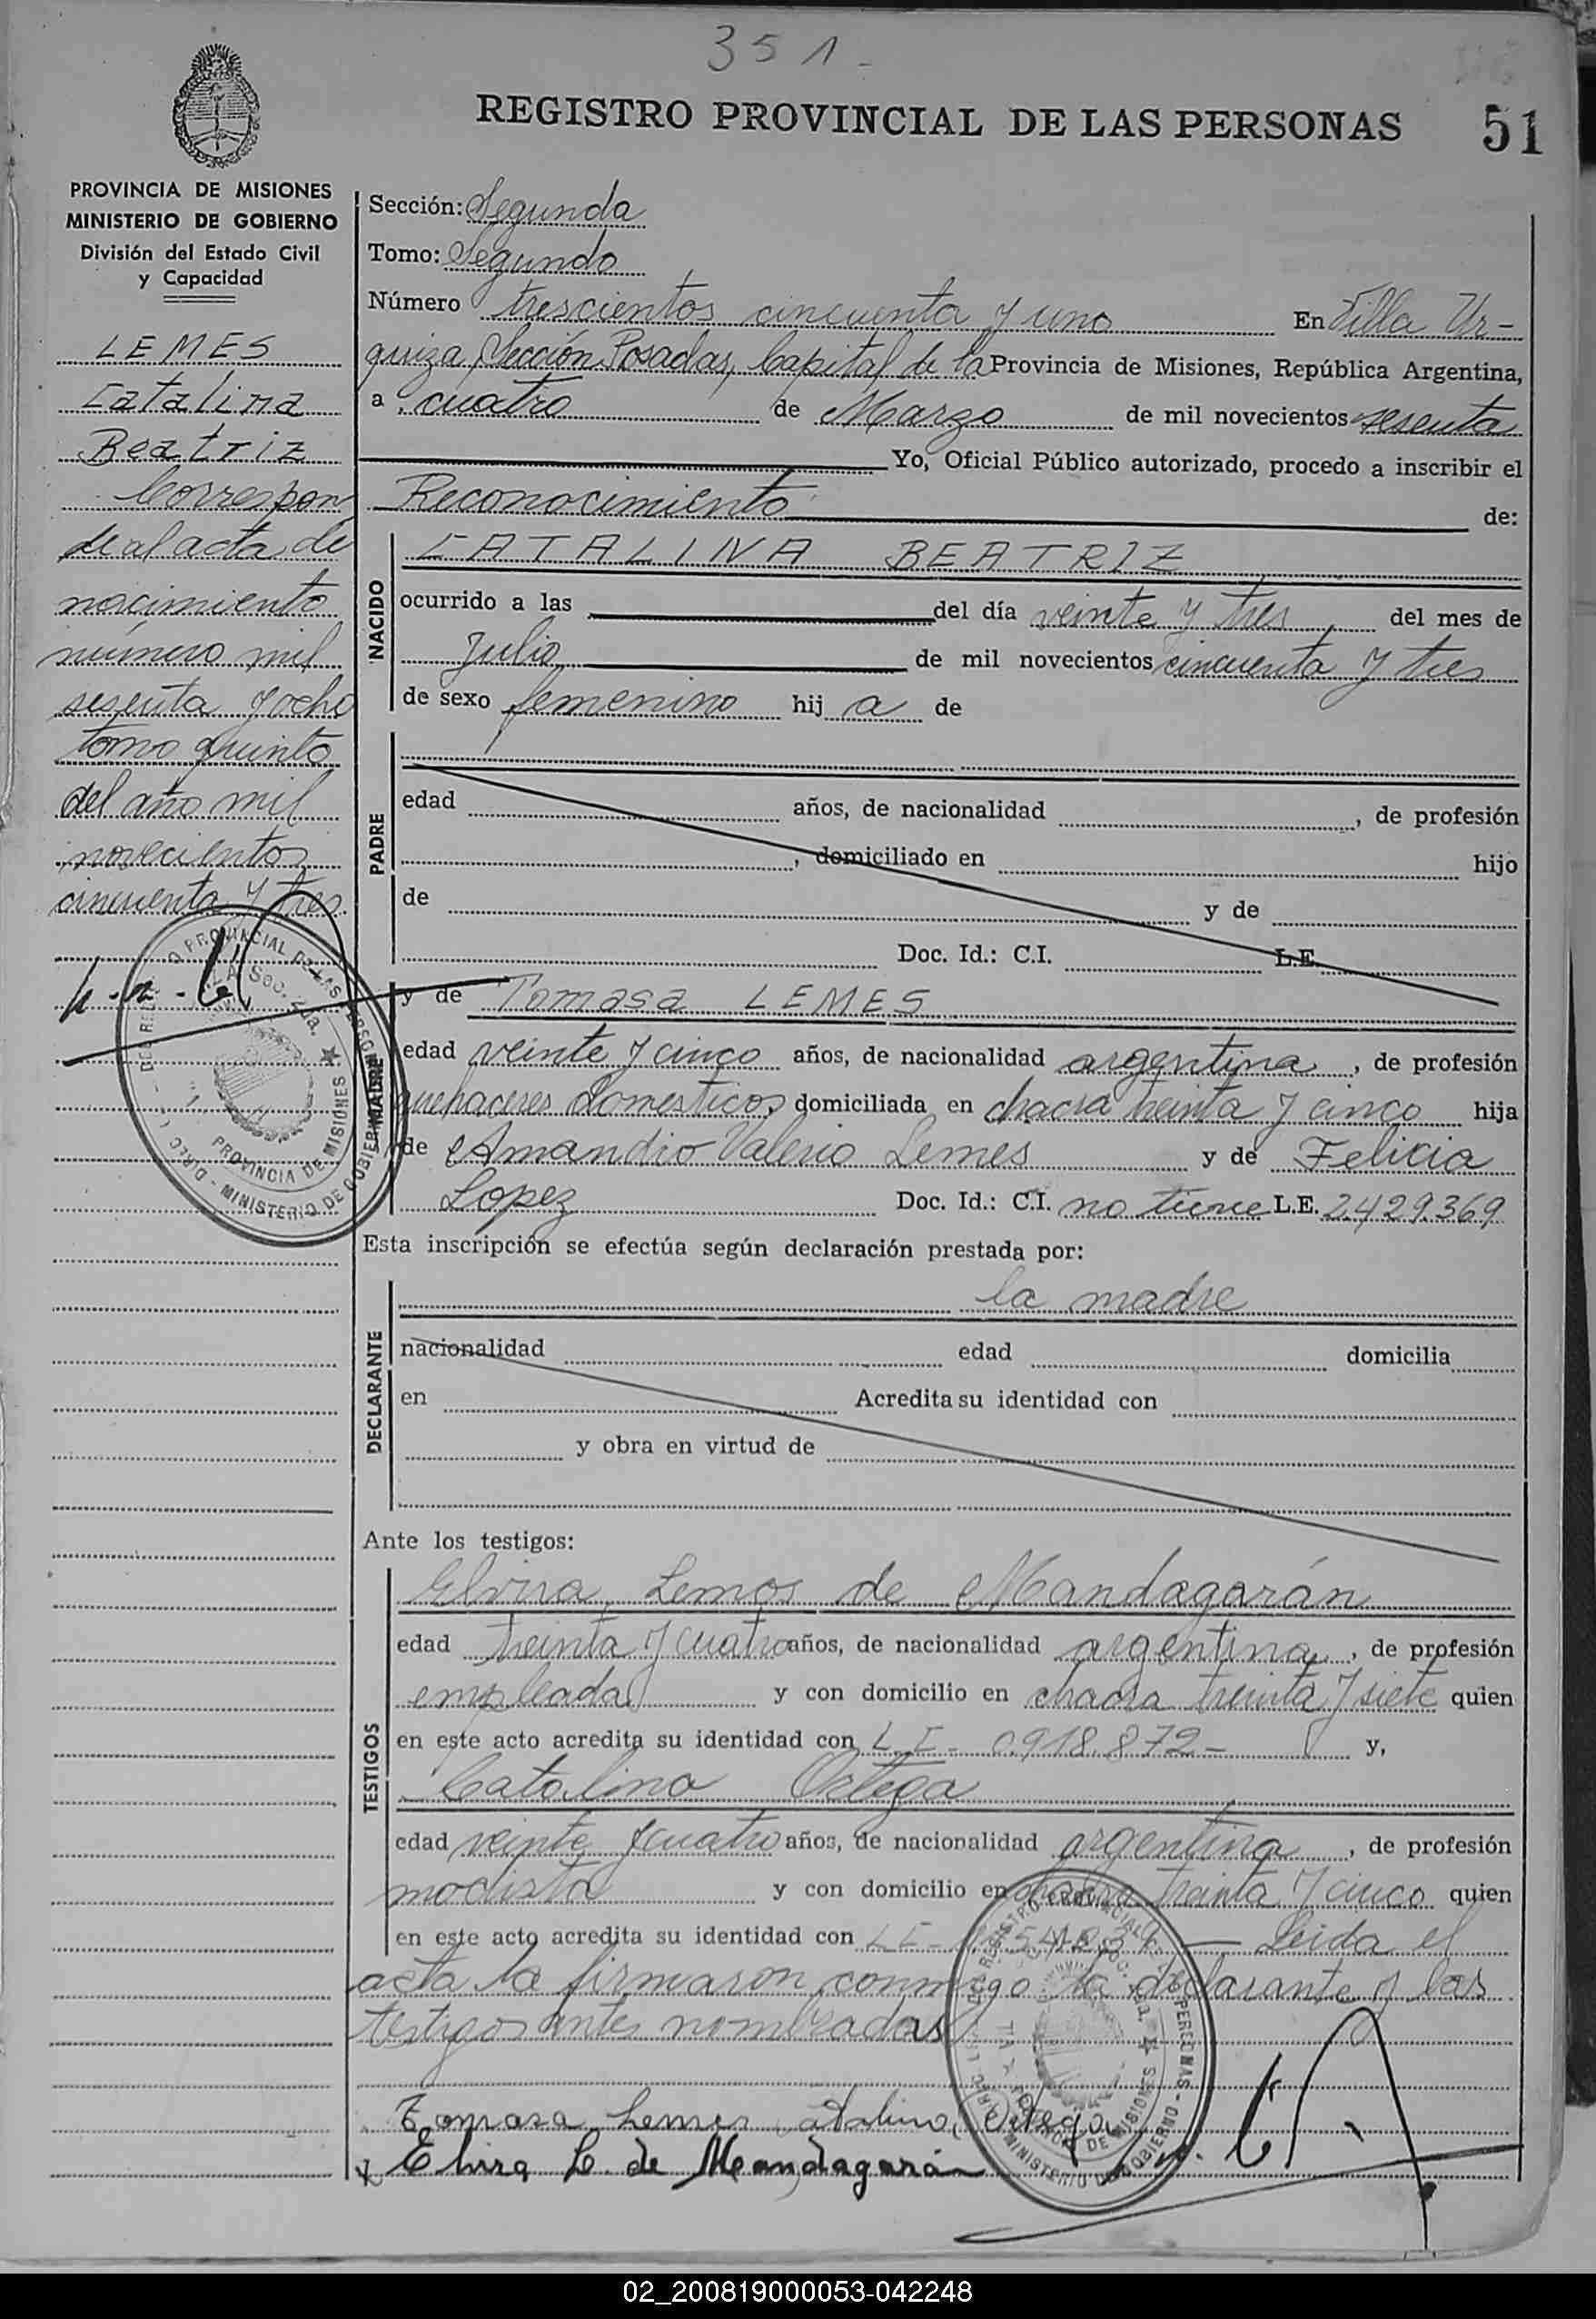 351-
REGISTRO PROVINCIAL DE LAS PERSONAS 51
PROVINCIA DE MISIONES
MINISTERIO DE GOBIERNO
División del Estado Civil
y Capacidad
LEMES
Catalina
Beatriz
Correspon
de al acta de
nacimiento
número mil
sesenta y ocho
tomo quinto
del año mil
novecientos
cincuenta y tres
Sección: Segunda
Tomo: Segundo
Número trescientos cincuenta y uno En Villa Ur-
quiza, Sección Posadas, Capital de la Provincia de Misiones, República Argentina,
a cuatro de Marzo de mil novecientos sesenta
Yo, Oficial Público autorizado, procedo a inscribir el
Reconocimiento de:
NACIDO
CATALINA BEATRIZ
ocurrido a las del día veinte y tres del mes de
Julio de mil novecientos cincuenta y tres
de sexo femenino hij a de
PADRE
edad años, de nacionalidad , de profesión
, domiciliado en hijo
de y de
Doc. Id.: C.I. L.E.
MADRE
y de Tomasa LEMES
edad veinte y cinco años, de nacionalidad argentina, de profesión
quehaceres domesticos domiciliada en chacra treinta y cinco hija
de Amandio Valerio Lemes y de Felicia
Lopez Doc. Id.: C.I. no tiene L.E. 2.429.369
Esta inscripción se efectúa según declaración prestada por:
DECLARANTE
la madre
nacionalidad edad domicilia
en Acredita su identidad con
y obra en virtud de
Ante los testigos:
TESTIGOS
Elvira Lemos de Mandagarán
edad treinta y cuatro años, de nacionalidad argentina, de profesión
empleada y con domicilio en chacra treinta y siete quien
en este acto acredita su identidad con L.E- 0.918.872- y,
Catalina Ortega
edad veinte y cuatro años, de nacionalidad argentina, de profesión
modista y con domicilio en chacra treinta y cinco quien
en este acto acredita su identidad con LE- Leida el
acta la firmaron conmigo la declarante y las
testigos antes nombradas
Tomasa Lemes Catalina Ortega
Elvira L. de Mandagarán
PROVINCIA DE MISIONES
MINISTERIO DE GOBIERNO
02_200819000053-042248